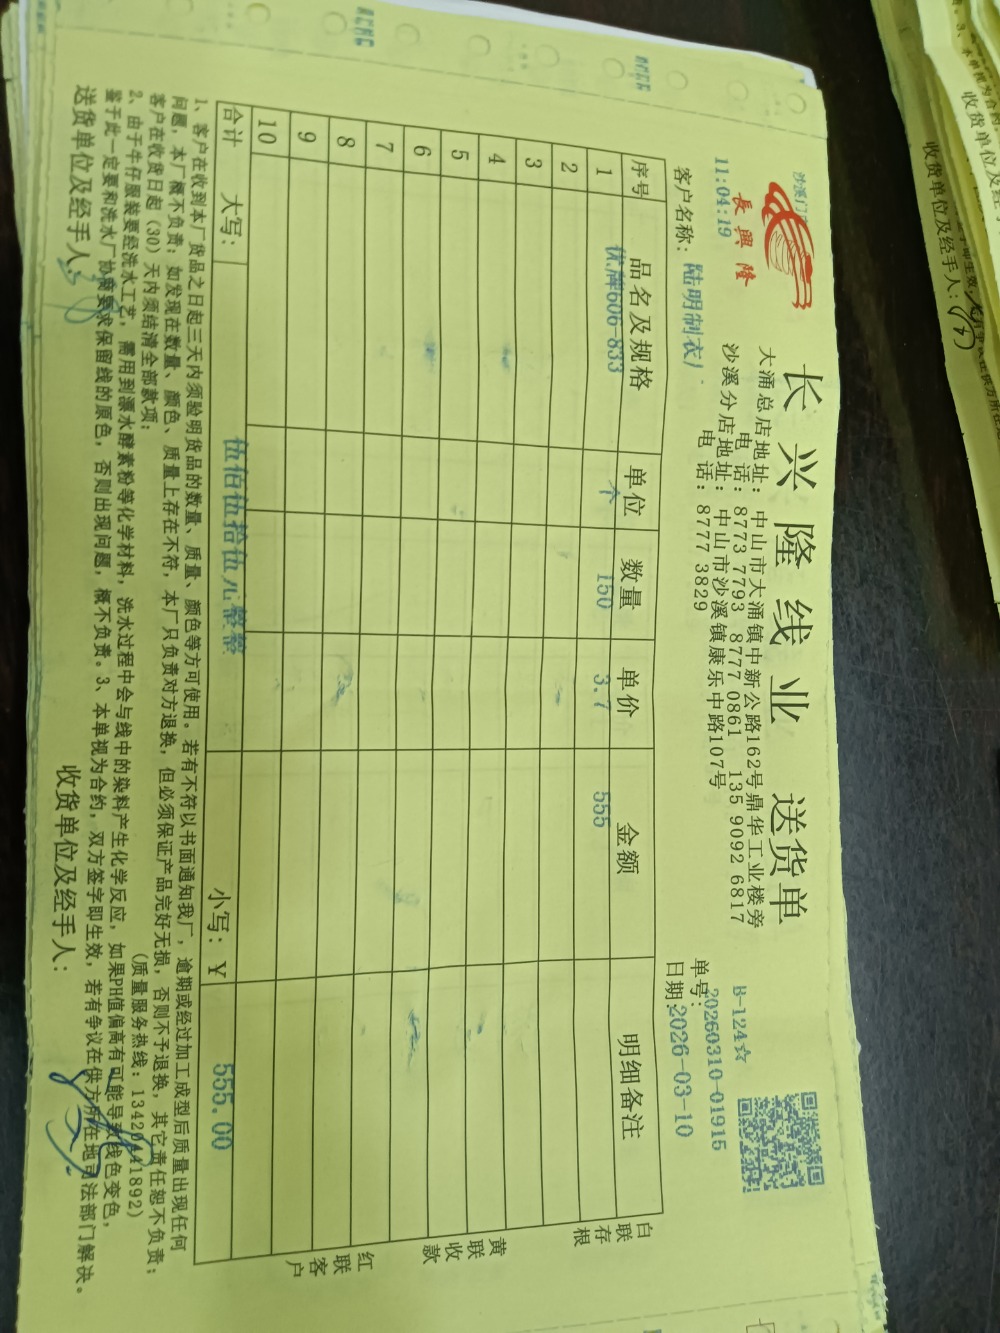 沙溪门
長興隆
11:04:19
长兴隆线业 送货单
大涌总店地址：中山市大涌镇中新公路162号鼎华工业楼旁
电 话：8773 7793 8777 0861 135 9092 6817
沙溪分店地址：中山市沙溪镇康乐中路107号
电 话：8777 3829
B-124☆
单号：20260310-01915
客户名称：陆明制衣厂
日期：2026-03-10
序号 品名及规格 单位 数量 单价 金额 明细备注
1 优牌606-833 个 150 3.7 555
2
3
4
5
6
7
8
9
10
合计 大写：伍佰伍拾伍元整整 小写：￥ 555.00
白联存根
黄联收款
红联客户
1、客户在收到本厂货品之日起三天内须验明货品的数量、质量、颜色等方可使用。若有不符以书面通知我厂，逾期或经过加工成型后质量出现任何
问题，本厂概不负责；如发现在数量、颜色、质量上存在不符，本厂只负责对方退换，但必须保证产品完好无损，否则不予退换，其它责任恕不负责；
客户在收货日起（30）天内须结清全部款项；
(质量服务热线：13420441892)
2、由于牛仔服装要经洗水工艺，需用到漂水酵素粉等化学材料，洗水过程中会与线中的染料产生化学反应，如果PH值偏高有可能导致线色变色，
鉴于此一定要和洗水厂协商要求保留线的原色，否则出现问题，概不负责。3、本单视为合约，双方签字即生效，若有争议在供方所在地司法部门解决。
送货单位及经手人：
收货单位及经手人：
收货单位及经手人：